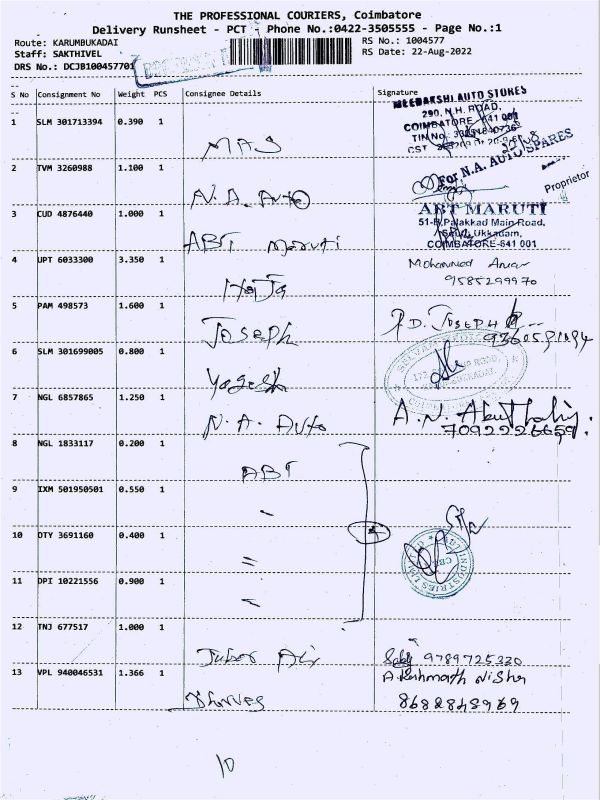 THE PROFESSIONAL COURIERS, Coimbatore
Delivery Runsheet - PCT Phone No.:0422-3505555 - Page No.:1
Route: KARUMBUKADAI
RS No.: 1004577
Staff: SAKTHIVEL
RS Date: 22-Aug-2022
DRS No.: DCJB100457701
S No Consignment No Weight PCS Consignee Details Signature
MEENAKSHI AUTO STORES
290, N.H. ROAD,
COIMBATORE - 641 001
1 SLM 301713394 0.390 1 MAS
2 TVM 3260988 1.100 1 N.A. Auto
For N.A. AUTO SPARES
Proprietor
3 CUD 4876440 1.000 1 ABT Maruti
ABT MARUTI
51-B, Palakkad Main Road,
Ukkadam,
COIMBATORE-641 001
4 UPT 6033300 3.350 1 Mohammed
9585299970
5 PAM 498573 1.600 1 Joseph P.D. JOSEPH
6 SLM 301699005 0.800 1 Yogesh
7 NGL 6857865 1.250 1 N.A. Auto A.N.
7092226659
8 NGL 1833117 0.200 1 ABT
9 IXM 501950501 0.550 1 "
10 OTY 3691160 0.400 1 =
11 DPI 10221556 0.900 1
INDUSTRIES LIMITED
CBE
12 TNJ 677517 1.000 1 9789725320
13 VPL 940046531 1.366 1 A Rahmath Nisha
8682848969
10